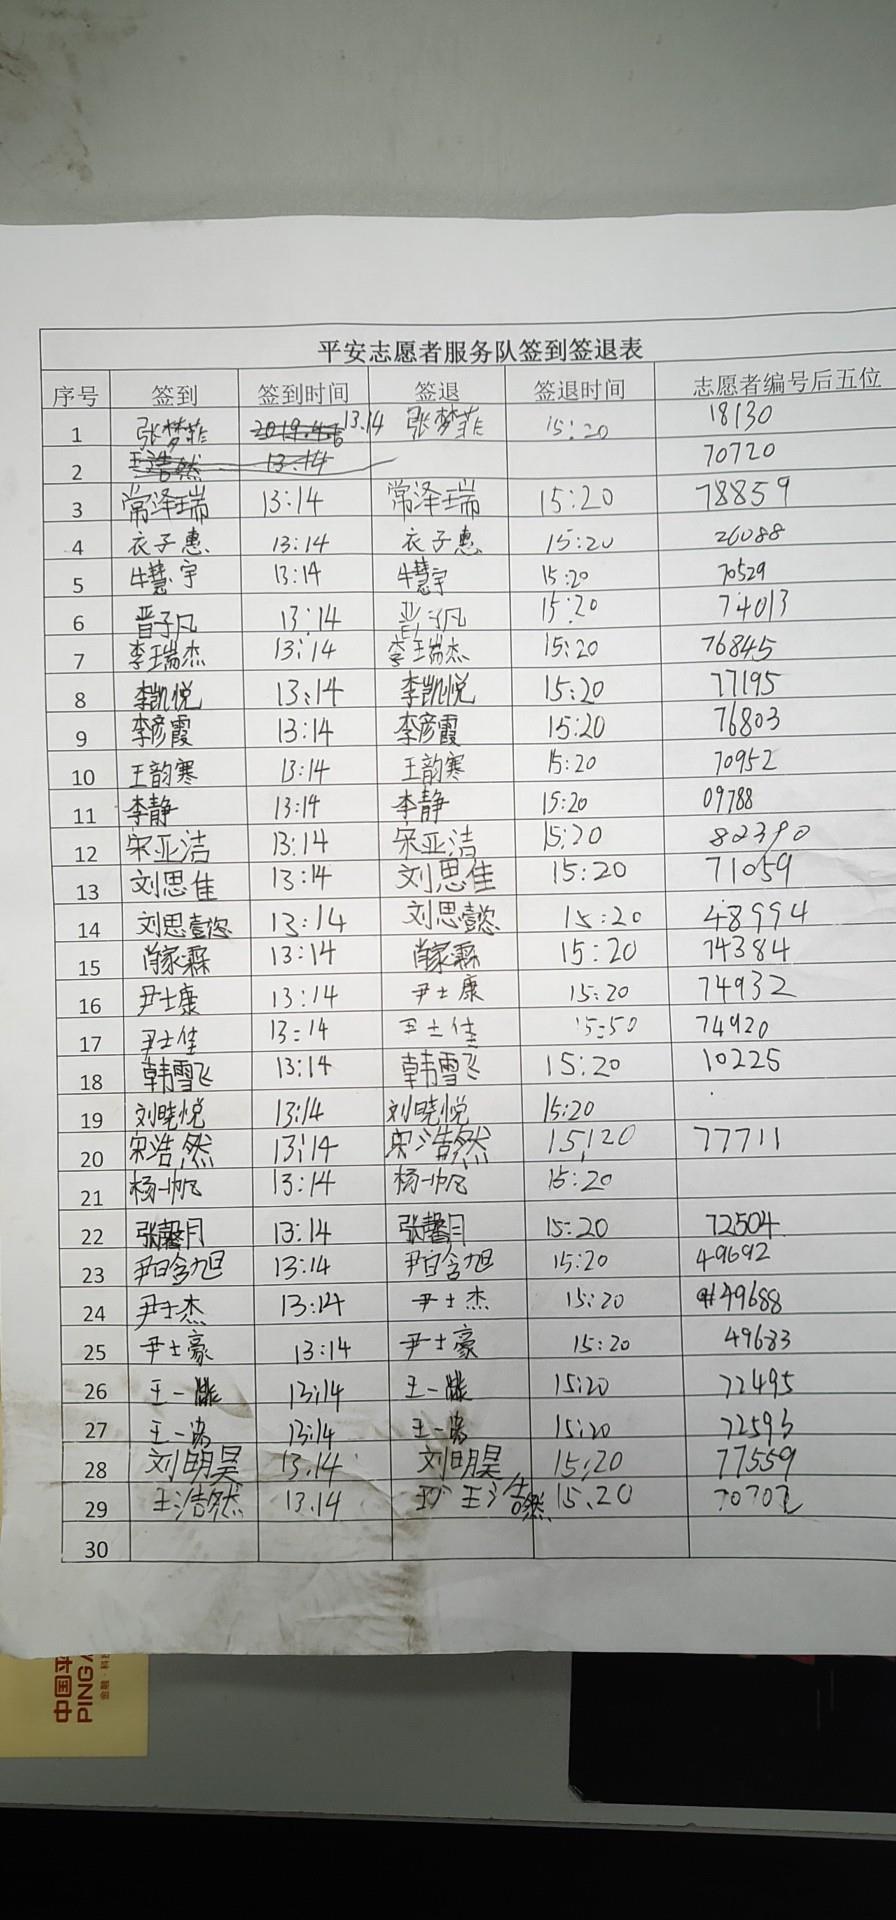 平安志愿者服务队签到签退表
序号 签到 签到时间 签退 签退时间 志愿者编号后五位
1 张梦菲 13.14 张梦菲 15:20 18130
2 王浩然 13.14 70720
3 常泽瑞 13:14 常泽瑞 15:20 78859
4 衣子惠 13:14 衣子惠 15:20 26088
5 牛慧宇 13:14 牛慧宇 15:20 70529
6 晋子凡 13:14 晋子凡 15:20 74013
7 李瑞杰 13:14 李瑞杰 15:20 76845
8 李凯悦 13:14 李凯悦 15:20 77195
9 李彦霞 13:14 李彦霞 15:20 76803
10 王韵寒 13:14 王韵寒 15:20 70952
11 李静 13:14 李静 15:20 09788
12 宋亚洁 13:14 宋亚洁 15:20 82390
13 刘思佳 13:14 刘思佳 15:20 71059
14 刘思懿 13:14 刘思懿 15:20 48994
15 肖家霖 13:14 肖家霖 15:20 74384
16 尹士康 13:14 尹士康 15:20 74932
17 尹士佳 13:14 尹士佳 15:50 74920
18 韩雪飞 13:14 韩雪飞 15:20 10225
19 刘晓悦 13:14 刘晓悦 15:20
20 宋浩然 13:14 宋浩然 15:20 77711
21 杨一帆 13:14 杨一帆 15:20
22 张馨月 13:14 张馨月 15:20 72504
23 尹含旭 13:14 尹含旭 15:20 49692
24 尹士杰 13:14 尹士杰 15:20 49688
25 尹士豪 13:14 尹士豪 15:20 49683
26 王一 13:14 王一 15:20 72495
27 王一 13:14 王一 15:20 72593
28 刘明昊 13.14 刘明昊 15:20 77559
29 王浩然 13.14 王浩然 15.20 70702
30
中国平
PING
金融·科技